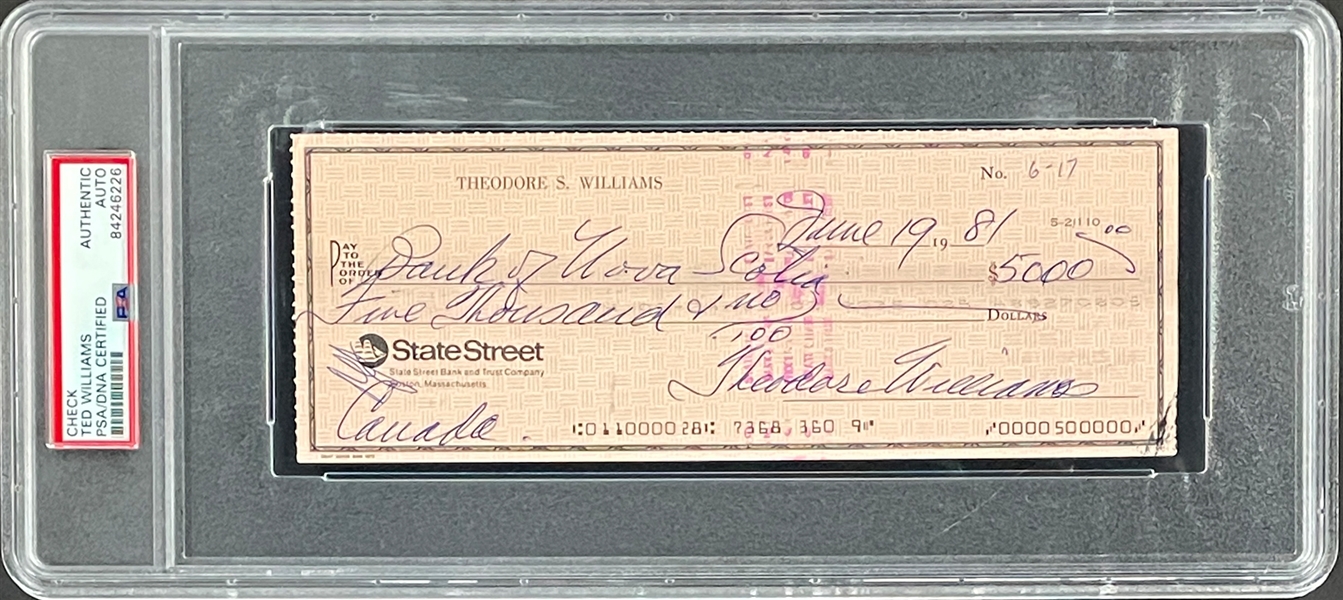 CHECK
TED WILLIAMS
PSA/DNA CERTIFIED
AUTHENTIC
AUTO
84246226
PSA
THEODORE S. WILLIAMS
No. 6-17
June 19 19 81
5-2/110
PAY TO THE ORDER OF Bank of Nova Scotia $5000 00
Five Thousand & no/100 DOLLARS
State Street
State Street Bank and Trust Company
Boston, Massachusetts
Theodore Williams
Canada.
⑆011000028⑆ 7368 360 9⑈ ⑈0000500000⑈